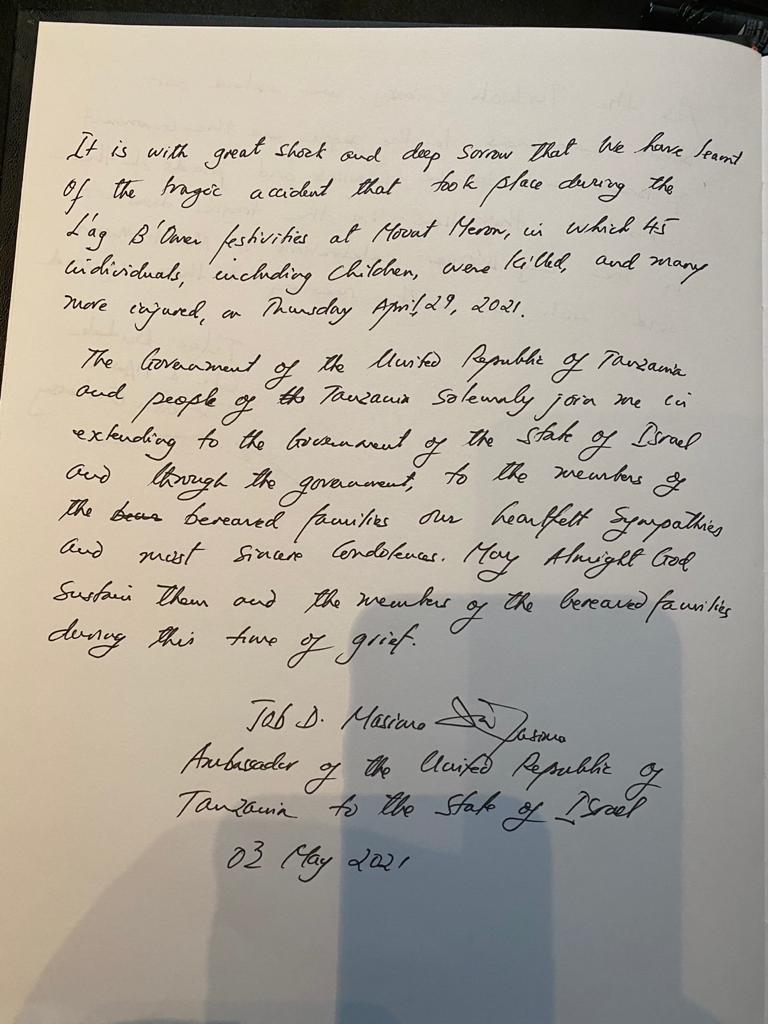 It is with great shock and deep sorrow that we have learnt
of the tragic accident that took place during the
L'ag B'Omer festivities at Mount Meron, in which 45
individuals, including children, were killed, and many
more injured, on Thursday April, 29, 2021.
The Government of the United Republic of Tanzania
and people of th Tanzania solemnly join me in
extending to the Government of the State of Israel
and through the government, to the members of
the beraved families our heartfelt sympathies
and most sincere condolences. May Almight God
sustain them and the members of the bereaved families
during this time of grief.
Job D. Masima Masima
Ambassador of the United Republic of
Tanzania to the State of Israel
03 May 2021